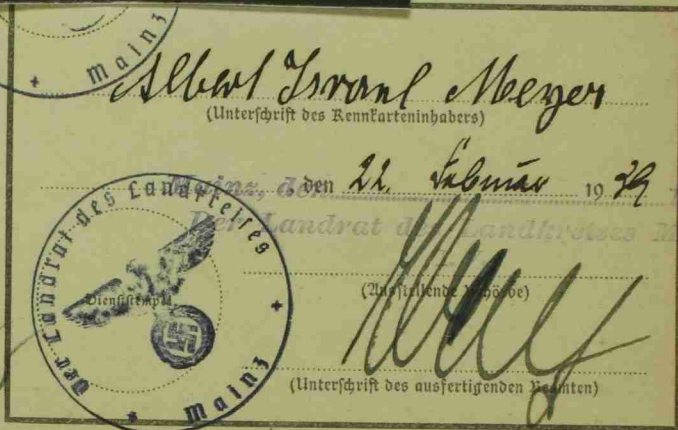 Mainz
Albert Israel Meyer
(Unterschrift des Kennkarteninhabers)
Mainz, den den 22. Februar 1939
Der Landrat des Landkreises M
(Ausstellende Behörde)
(Unterschrift des ausfertigenden Beamten)
Der Landrat des Landkreises
Mainz
Dienststempel